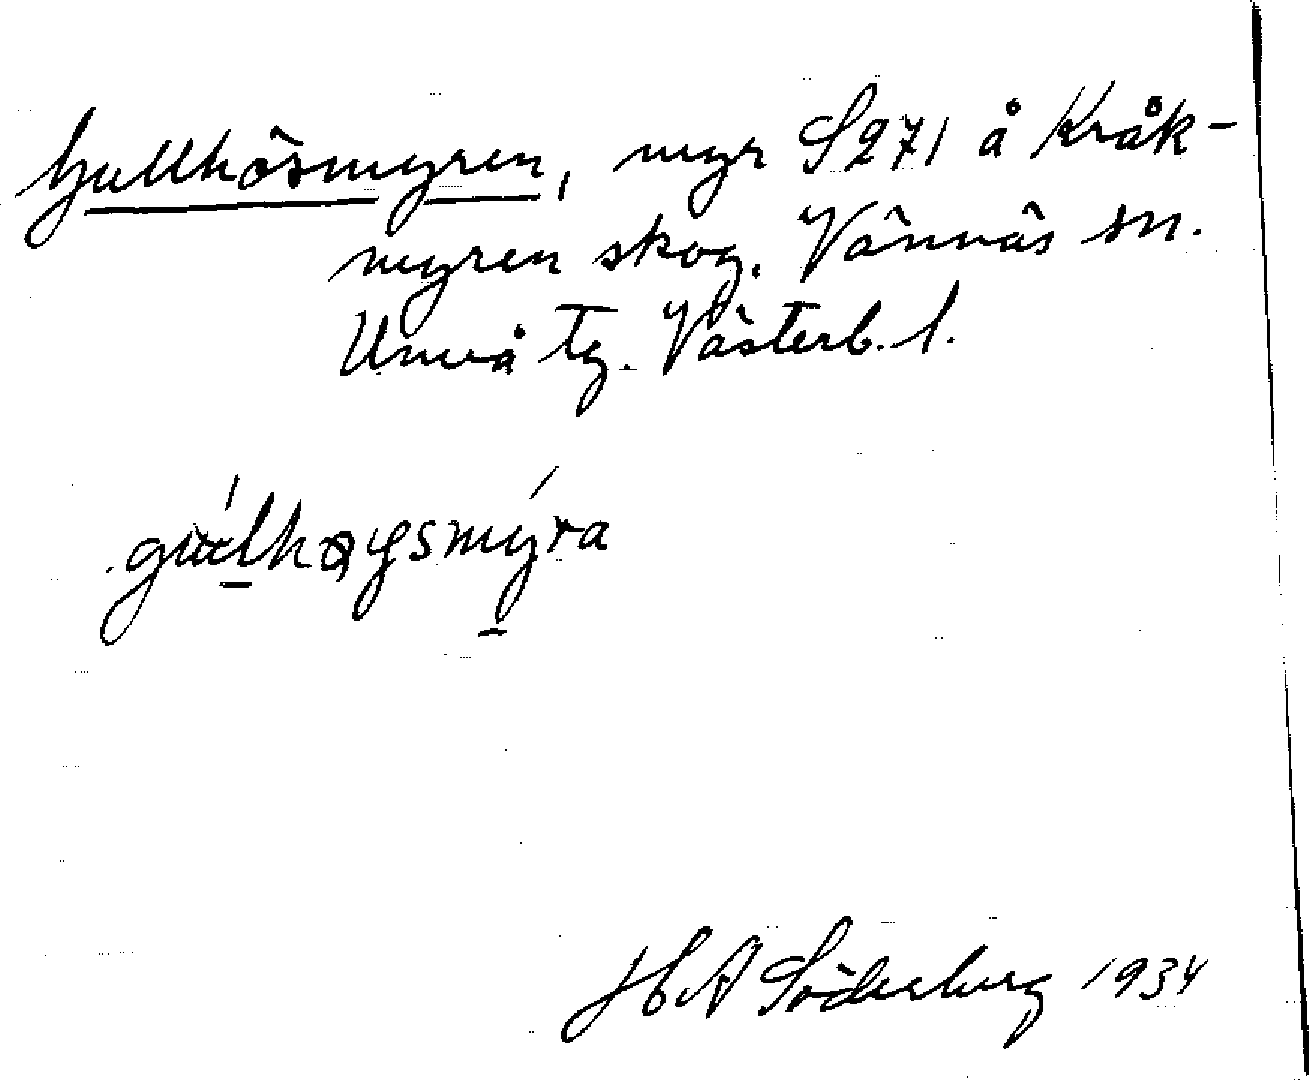 Gullhösmyren, myr S 271 å Kråk-
myren skog. Vännäs sn.
Umeå tg. Västerb. l.
H A Söderberg 1934